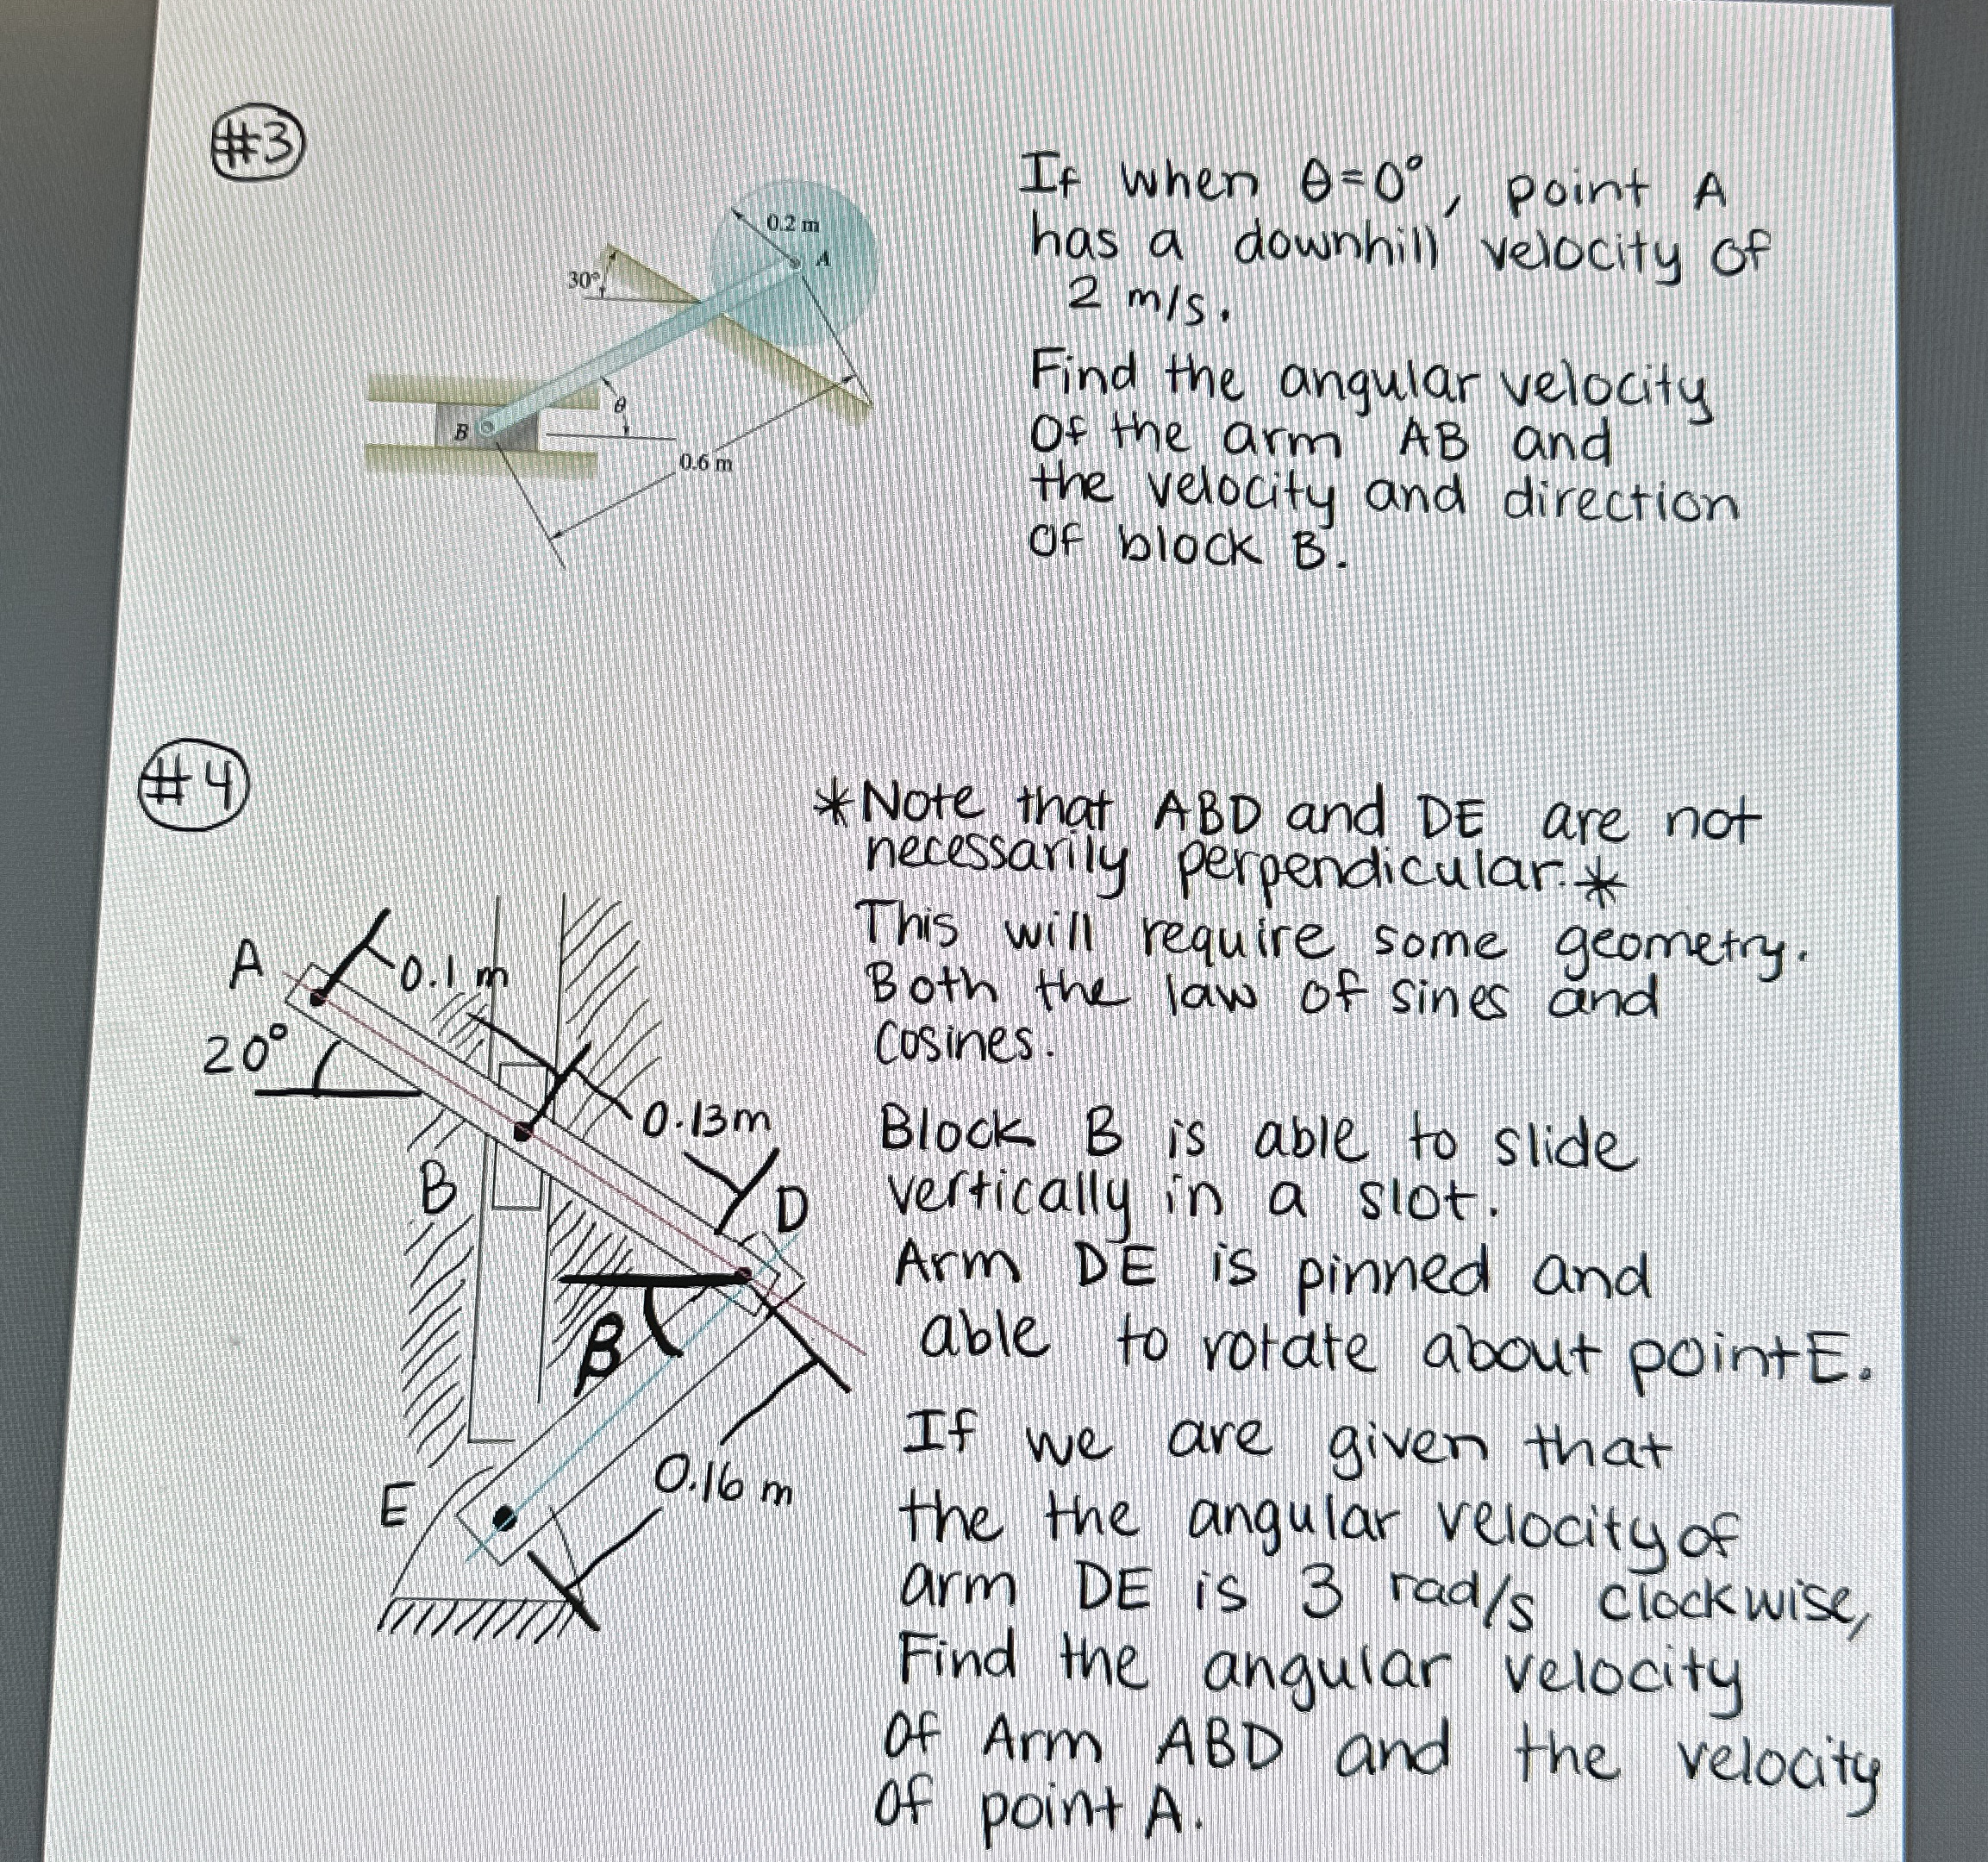 #3
0.2 m
A
30°
θ
B
0.6 m
If when θ=0°, point A
has a downhill velocity of
2 m/s.
Find the angular velocity
of the arm AB and
the velocity and direction
of block B.
#4
*Note that ABD and DE are not
necessarily perpendicular.*
This will require some geometry.
Both the law of sines and
cosines.
A
0.1 m
20°
0.13m
B
D
β
E
0.16 m
Block B is able to slide
vertically in a slot.
Arm DE is pinned and
able to rotate about point E.
If we are given that
the the angular velocity of
arm DE is 3 rad/s clockwise,
Find the angular velocity
of Arm ABD and the velocity
of point A.